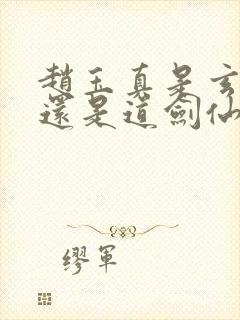 趙玉真是玄
還是道劍仙
繆軍